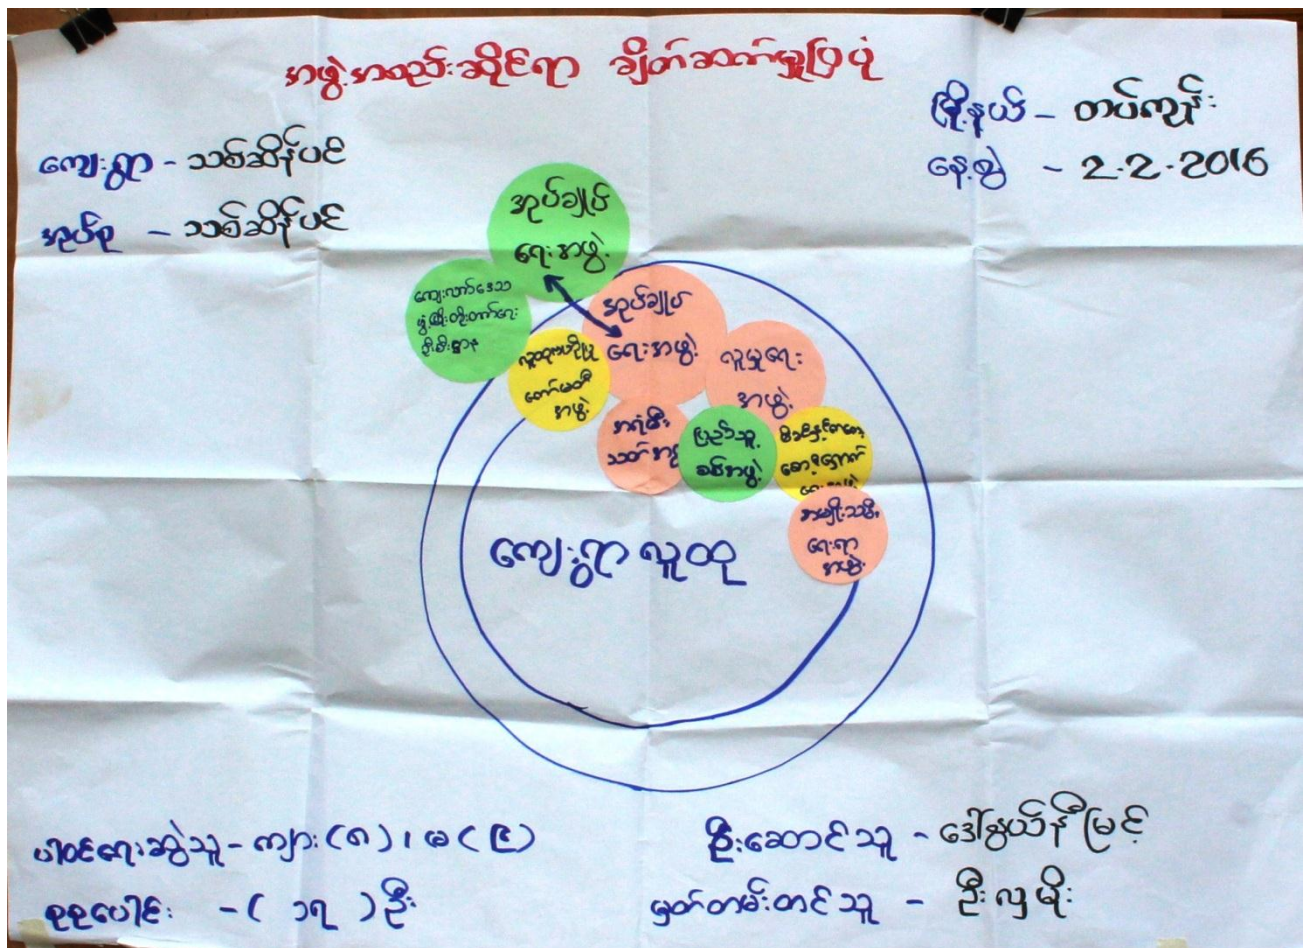 အဖွဲ့အစည်းဆိုင်ရာ ချိတ်ဆက်မှုပြပုံ
ကျေးရွာ - သစ်ဆိမ့်ပင်
အုပ်စု - သစ်ဆိမ့်ပင်
မြို့နယ် - တပ်ကုန်း
နေ့စွဲ - 2.2.2016
အုပ်ချုပ်
ရေးအဖွဲ့
ကျေးလက်ဒေသ
ဖွံ့ဖြိုးတိုးတက်ရေး
ဦးစီးဌာန
အုပ်ချုပ်
ရေးအဖွဲ့
လူထုဗဟိုပြု
ကော်မတီ
အဖွဲ့
လူမှုရေး
အဖွဲ့
အရံမီး
သတ်
ပြည်သူ့
စစ်အဖွဲ့
မိခင်နှင့်ကလေး
စောင့်ရှောက်
ရေးအဖွဲ့
အမျိုးသမီး
ရေးရာ
အဖွဲ့
ကျေးရွာလူထု
ပါဝင်ဆွေးနွေးသူ - ကျား (၈) ၊ မ (၉)
စုစုပေါင်း - ( ၁၇ ) ဦး
ဦးဆောင်သူ - ဒေါ်နွယ်နီမြင့်
မှတ်တမ်းတင်သူ - ဦးလှမိုး